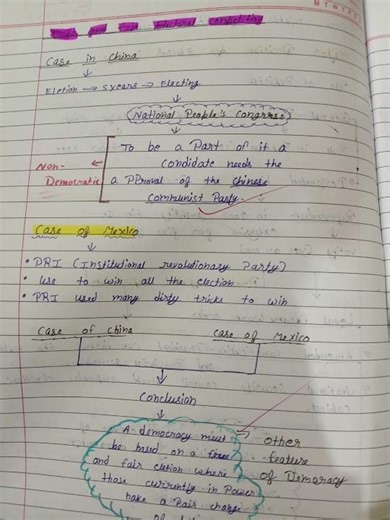 Free and Fair electoral competition
Case in China
Eletion → 5 years → Electing
National People's Congress
To be a Part of it a
candidate needs the
a PProval of the Chinese
Communist Party.
Non-
Democratic
Case of Mexico
• PRI (Institutional revolutionary Party)
• Use to win all the election
• PRI used many dirty tricks to win
Case of China
Case of Mexico
Conclusion
A democracy must
be based on a free
and fair eletion where
those currently in Power
have a fair
other
feature
of Demoracy